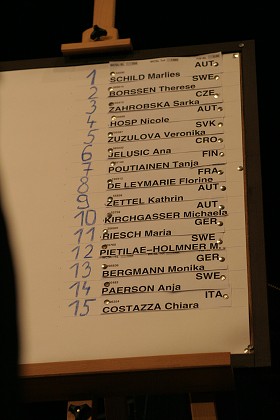 1 SCHILD Marlies AUT
2 BORSSEN Therese SWE
3 ZAHROBSKA Sarka CZE
4 HOSP Nicole AUT
5 ZUZULOVA Veronika SVK
6 JELUSIC Ana CRO
7 POUTIAINEN Tanja FIN
8 DE LEYMARIE Florine FRA
9 ZETTEL Kathrin AUT
10 KIRCHGASSER Michaela AUT
11 RIESCH Maria GER
12 PIETILAE-HOLMNER M. SWE
13 BERGMANN Monika GER
14 PAERSON Anja SWE
15 COSTAZZA Chiara ITA